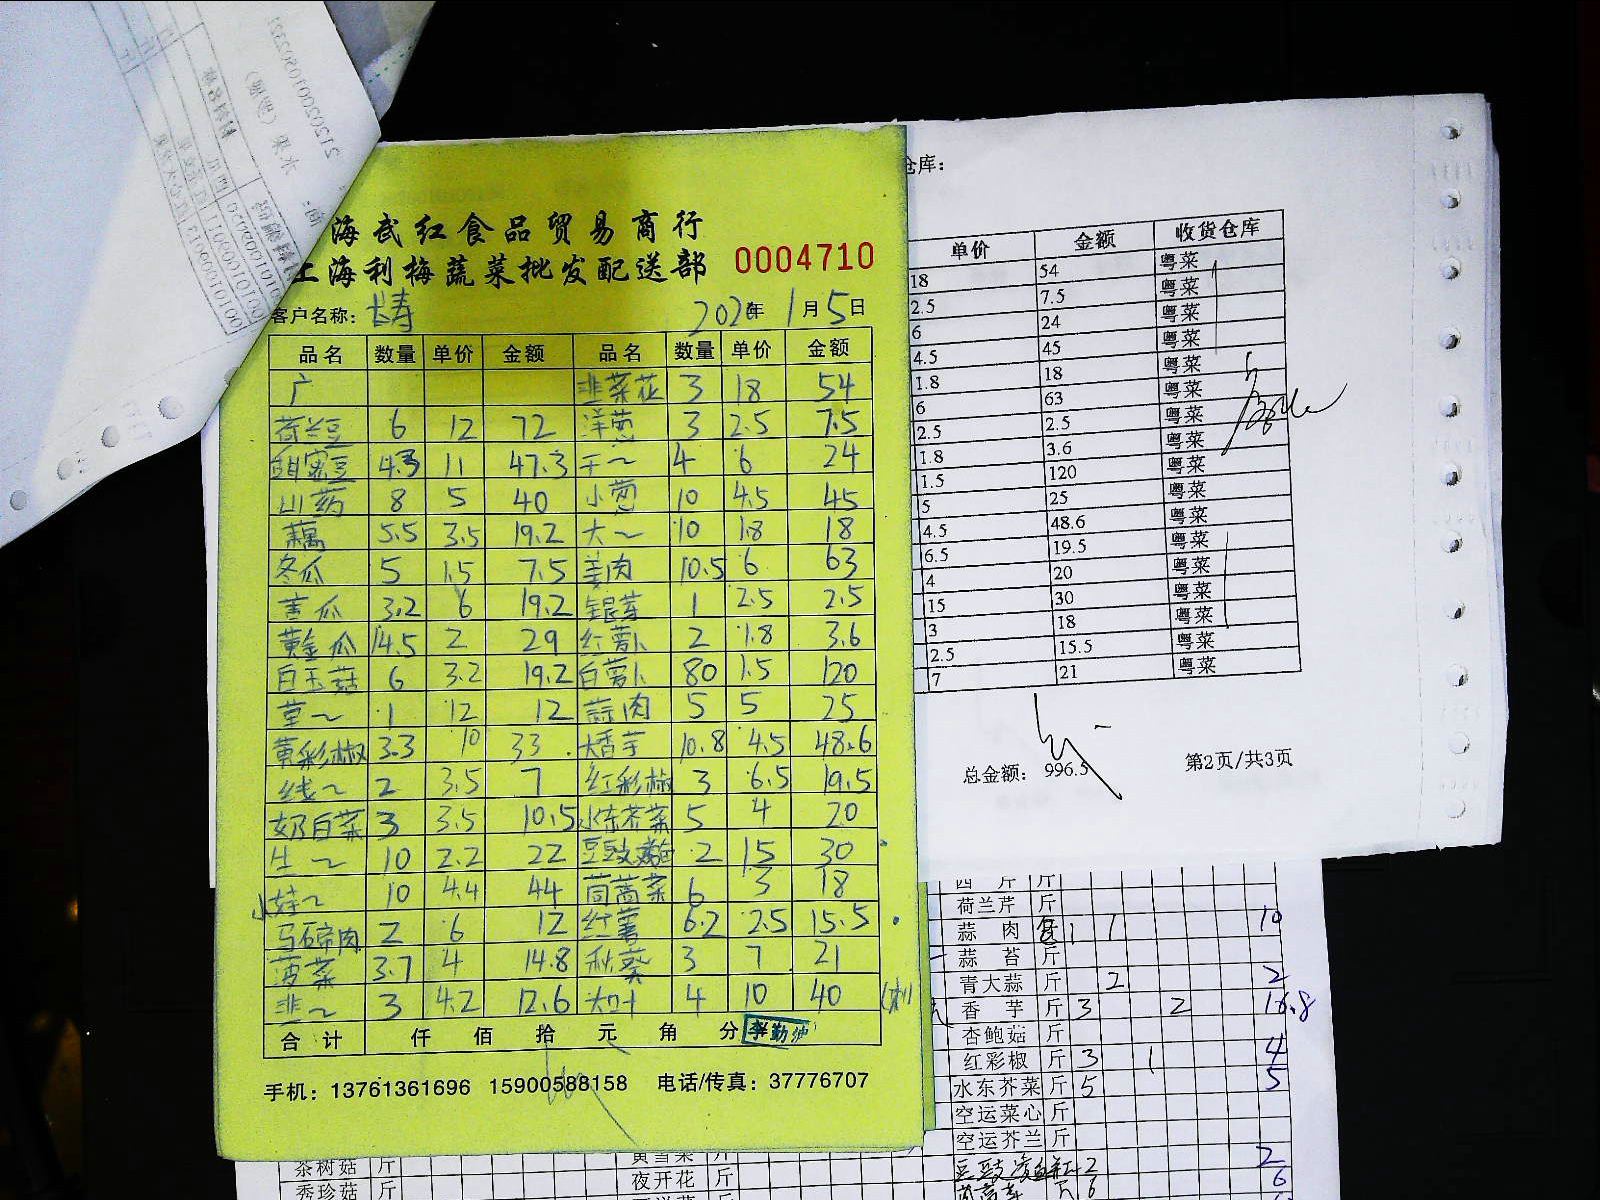 海武红食品贸易商行
上海利梅蔬菜批发配送部 0004710
客户名称: 2020年 1月 5日
品名 数量 单价 金额 品名 数量 单价 金额
广 韭菜花 3 18 54
荷兰豆 6 12 72 洋葱 3 2.5 7.5
甜蜜豆 4.3 11 47.3 干~ 4 6 24
山药 8 5 40 小葱 10 4.5 45
藕 5.5 3.5 19.2 大~ 10 1.8 18
冬瓜 5 1.5 7.5 姜肉 10.5 6 63
青瓜 3.2 6 19.2 银芽 1 2.5 2.5
黄金瓜 14.5 2 29 红萝卜 2 1.8 3.6
白玉菇 6 3.2 19.2 白萝卜 80 1.5 120
草~ 1 12 12 蒜肉 5 5 25
黄彩椒 3.3 10 33 大香芋 10.8 4.5 48.6
线~ 2 3.5 7 红彩椒 3 6.5 19.5
奶白菜 3 3.5 10.5 水东芥菜 5 4 20
生~ 10 2.2 22 2 15 30
小娃~ 10 4.4 44 茼蒿菜 6 3 18
马碲肉 2 6 12 红薯 6.2 2.5 15.5
菠菜 3.7 4 14.8 秋葵 3 7 21
韭~ 3 4.2 12.6 4 10 40
合计 仟 佰 拾 元 角 分
手机: 13761361696 15900588158 电话/传真: 37776707
仓库:
单价 金额 收货仓库
18 54 粤菜
2.5 7.5 粤菜
6 24 粤菜
4.5 45 粤菜
1.8 18 粤菜
6 63 粤菜
2.5 2.5 粤菜
1.8 3.6 粤菜
1.5 120 粤菜
5 25 粤菜
4.5 48.6 粤菜
6.5 19.5 粤菜
4 20 粤菜
15 30 粤菜
3 18 粤菜
2.5 15.5 粤菜
7 21 粤菜
总金额: 996.5 第2页/共3页
西芹 斤
荷兰芹 斤
蒜肉 1 1 10
蒜苔 斤
青大蒜 斤 2 2
香芋 斤 3 2 16.8
杏鲍菇 斤
红彩椒 斤 3 1 4
水东芥菜 斤 5 5
空运菜心 斤
空运芥兰 斤
2 2
茼蒿菜 6 6
茶树菇 斤
秀珍菇 斤
黄雪菜 斤
夜开花 斤